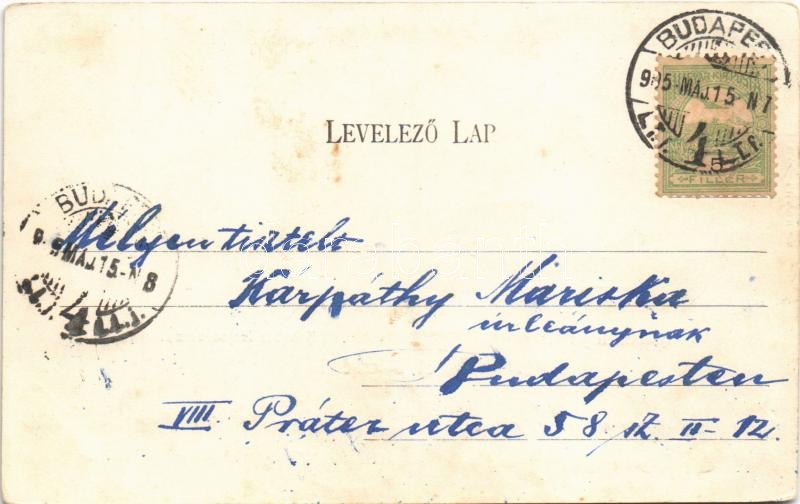 BUDAPES
905 MÁJ. 15 N 7
4
5
FILLÉR
LEVELEZŐ LAP
BUD
MÁJ. 15-N 8
4
Mélyen tisztelt
Kárpáthy Mariska
úrleánynak
Budapesten
VIII. Práter utca 58 sz. II-12.